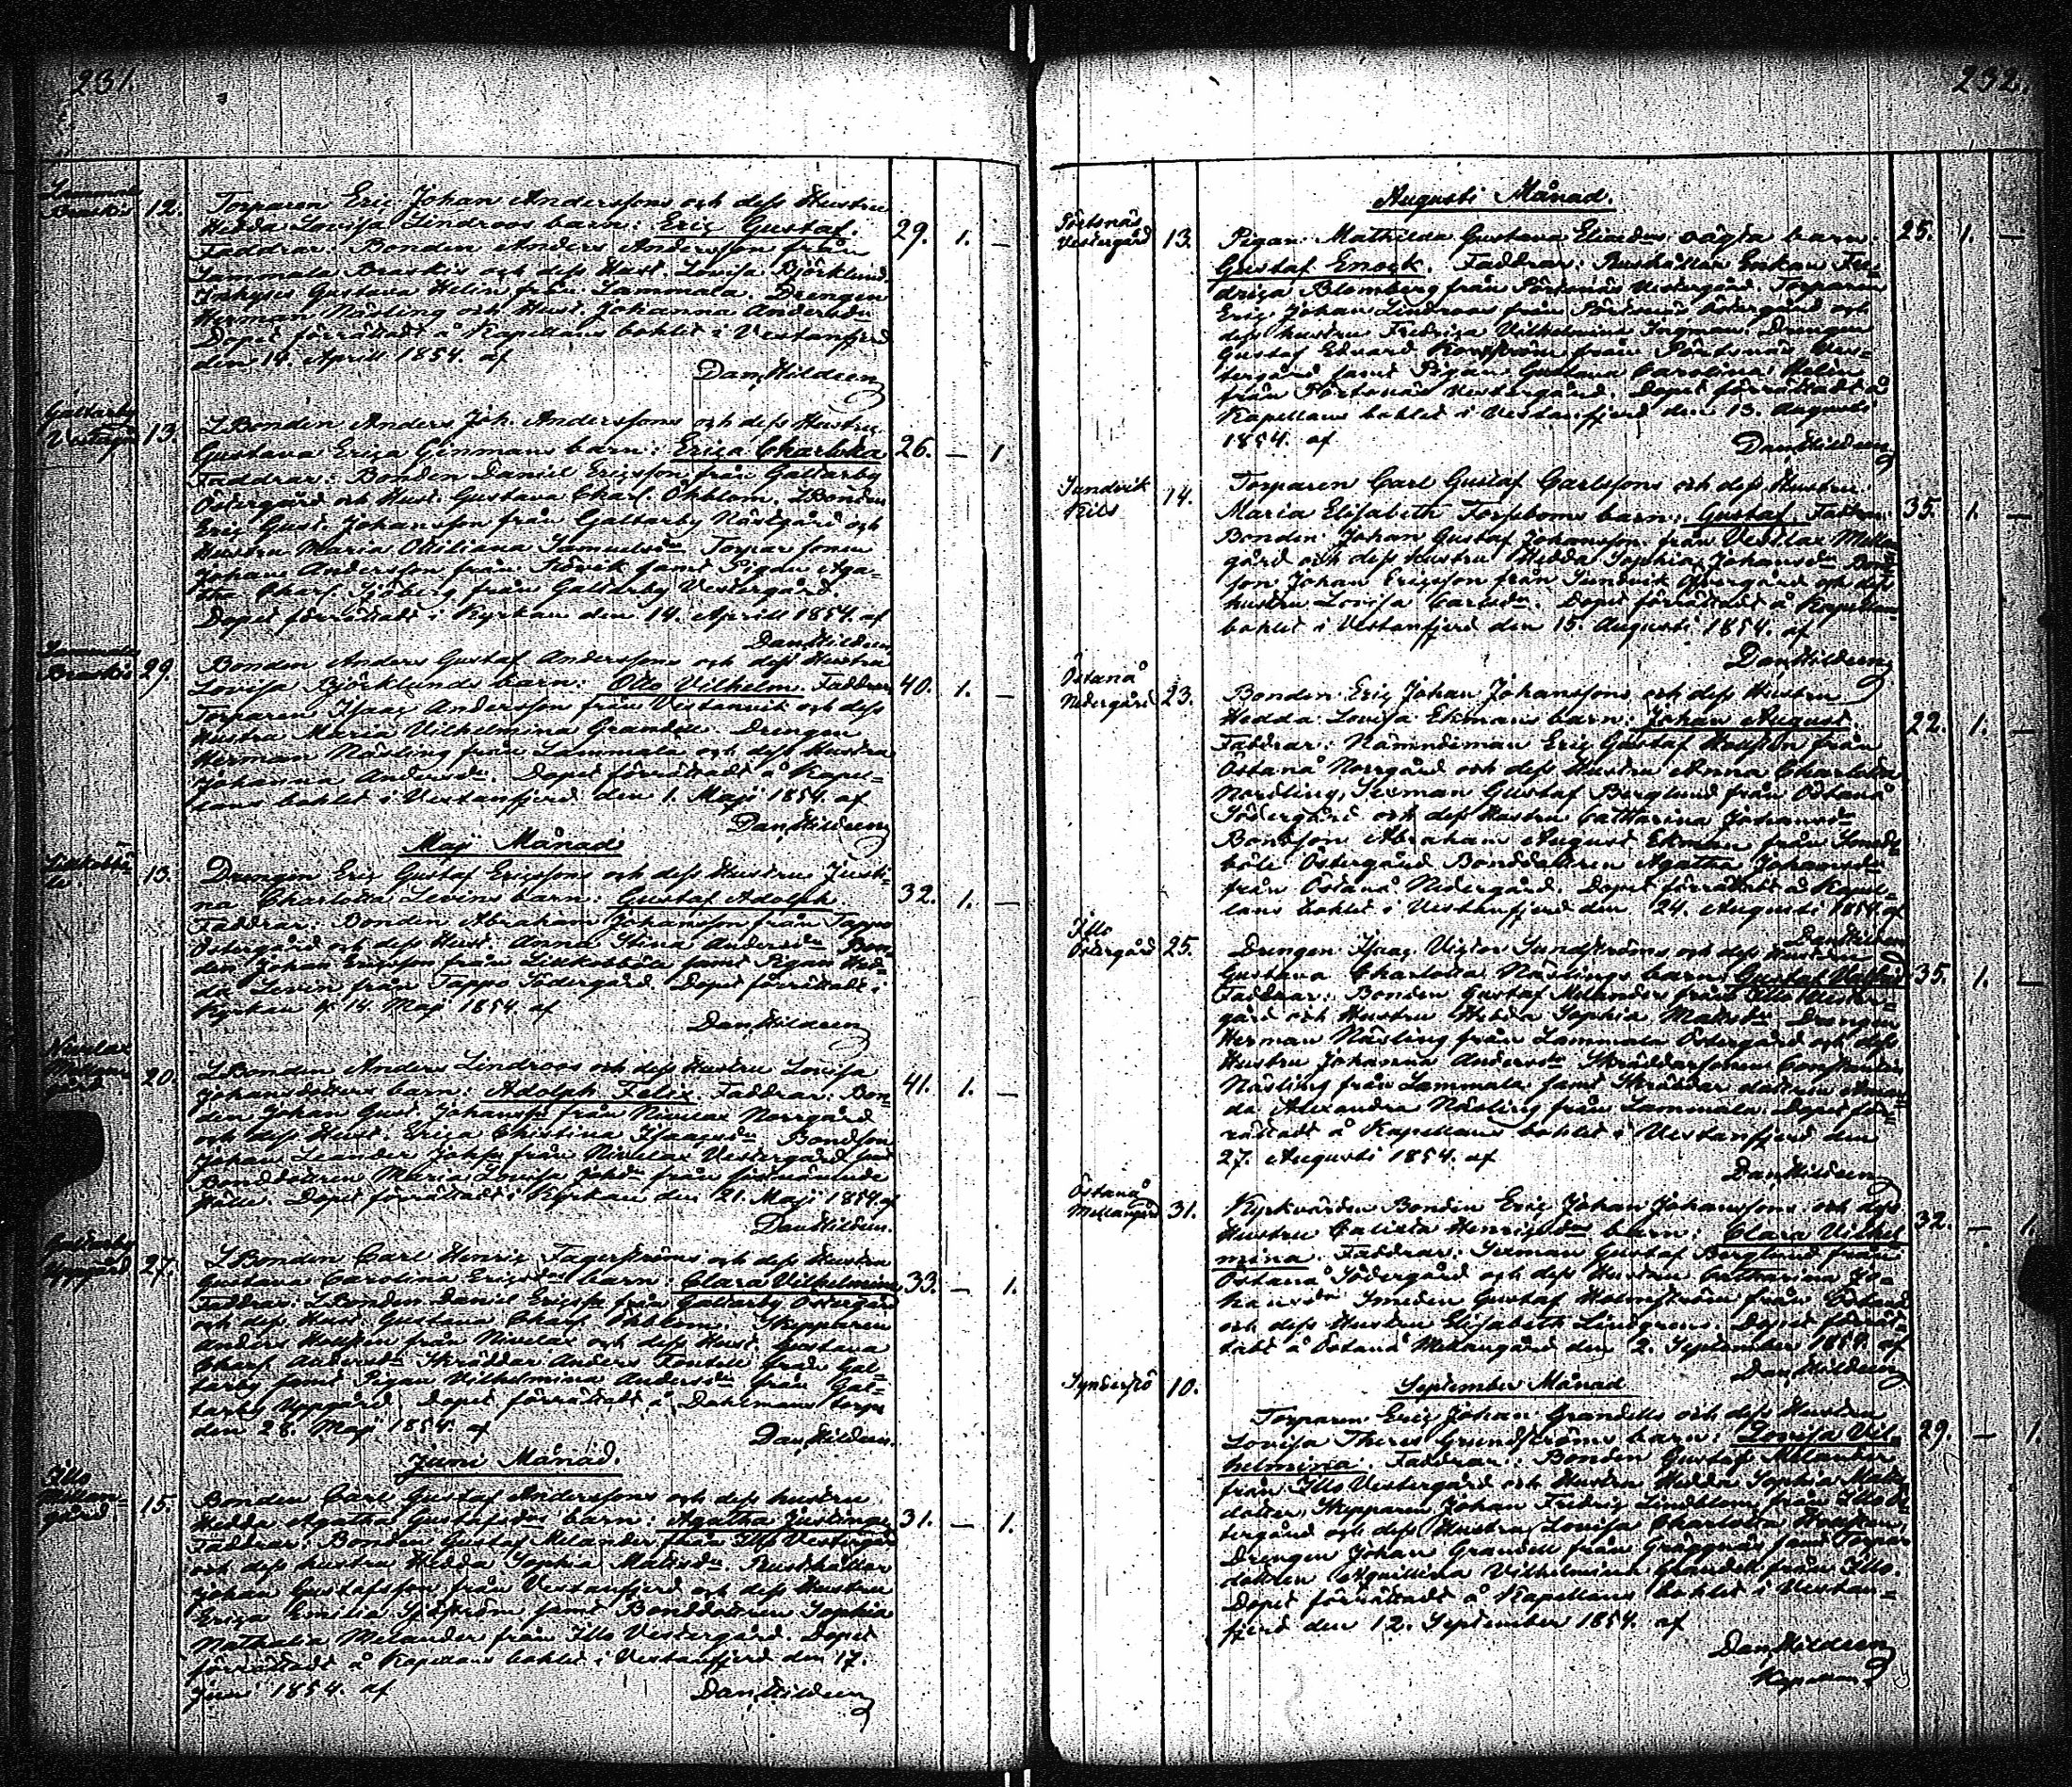 231.
Lammala
Braskis 12. Torparen Eric Johan Anderssons och dess Hustru
Hedda Lovisa Lindroos barn: Eric Gustaf. 29. 1. —
Faddrar: Bonden Anders Andersson från
Lammala Braskis och dess Hust. Lovisa Björklund.
Inhyses Gustava Helin från Lammala. Drengen
Herman Näsling och Hust. Johanna Andersdr
Dopet förrättadt å Kapellans bohlet i Vestanfjerd
den 14. Aprill 1854. af
Dan. Hildeen
Galtarby
13. LBonden Anders Joh. Anderssons och dess Hustru
Gustava Erica Ginmans barn: Erica Charlotta 26. — 1
Faddrar: Bonden Daniel Ericsson från Galtarby
Östergård och Hust. Gustava Charl. Öhblom. LBonden
Eric Gust. Johansson från Galtarby Nästgård och
Hustru Maria Ottiliana Samuelsdr Torpar sonen
Johan Andersson från samt Pigan Aga-
tha Charl. Sjöberg från Galtarby Vestergård.
Dopet förrättadt i Kyrkan den 14. Aprill 1854. af
Dan. Hildeen
Braskis 29. Bonden Anders Gustaf Anderssons och dess Hustru
Lovisa Björklunds barn: Otto Vilhelm. Faddrar 40. 1. —
Torparen Isaac Andersson från Vestanvik och dess
Hustru Maria Vilhelmina Grandell. Drengen
Herman Näsling från Lammala och dess Hustru
Johanna Andersdr. Dopet förrättadt å Kapel-
lans bohlet i Vestanfjerd den 1. Maji 1854. af
Dan. Hildeen
Maji Månad
13. Drengen Eric Gustaf Ericssons och dess Hustru Justi-
na Charlotta Levins barn: Gustaf Adolph. 32. 1. —
Faddrar: Bonden Abraham Johansson från Tappo
Östergård och dess Hust. Anna Stina Andersdr Bon-
den Johan Ericsson från samt Pigan Hed-
da Levin från Tappo Södergård Dopet förrättadt i
Kyrkan d 14. Maji 1854. af
Dan. Hildeen
Nivelax
Mellan-
gård 20. LBonden Anders Lindroos och dess Hustru Lovisa
Johansdotters barn: Adolph Felix Faddrar: Bon- 41. 1. —
den Johan Gust. Johanss. från Nivelax Norrgård
och dess Hust. Erica Christina Isaacsdr Bondson
Johan Leander Johss. från Nivelax Vestergård samt
Bonddottren Maria Lovisa Johdr från sistnämnde
ställe. Dopet förrättadt i Kyrkan den 21. Maji 1854. af
Dan. Hildeen.
Galtarby
Uppgård 27. LBonden Carl Henric Fagerströms och dess Hustru
Gustava Carolina Ericsdrs barn: Clara Vilhelmina 33. — 1.
Faddrar: LBonden Daniel Ericss. från Galtarby Östergård
och dess Hust. Gustava Charl. Öhblom. Skepparen
Anders från Nivelax och dess Hust. Gustava
Charl. Andersdr Skräddar Anders Fontell från Gal-
tarby samt Pigan Vilhelmina Andersdr från Gal-
tarby Uppgård. Dopet förrättadt å Dahlmans torp
den 28. Maji 1854. af
Dan. Hildeen.
Juni Månad.
Illo
Mellan-
gård. 15. Bonden Carl Gustaf Anderssons och dess hustru
Hedda Agatha Gustafsdrs barn: Agatha Justina 31. — 1.
Faddrar: Bonden Gustaf Melander från Illo Vestergård
och dess hustru Hedda Sophia Matsdr. Rusthållar
Johan Gustafsson från Vestanfjerd och dess Hustru
Erica Emilia Sjöström samt Bonddottren Sophia
Nathalia Melander från Illo Vestergård. Dopet
förrättadt å Kapellans bohlet i Vestanfjerd den 17.
Juni 1854. af
Dan. Hildeen
232.
Augusti Månad.
Pörtsnäs
Vestergård 13. Pigan Mathilda Gustava Eliaedrs oägta barn: 25. 1. —
Gustaf Enock. Faddrar: Rusthållar Enkan Fre-
drica Blomberg från Pörtsnäs Vestergård. Torparen
Eric Johan Lindroos från Pörtsnäs Östergård och
dess hustru Fredrica Vilhelmina Ingman. Drengen
Gustaf Edvard från Pörtsnäs Ves-
tergård samt Pigan Gustava Carolina Helin
från Pörtsnäs Vestergård. Dopet förrättadt å
Kapellans bohlet i Vestanfjerd den 13. Augusti
1854. af
Dan. Hildeen
Sundvik
Nils 14. Torparen Carl Gustaf Carlssons och dess Hustru
Maria Elisabeth Torsboms barn: Gustaf. Faddrar: 35. 1. —
Bonden Johan Gustaf Johansson från Vestlax Mellan-
gård och dess Hustru Hedda Sophia Johansdr Bond-
son Johan Ericsson från Sundvik Öfvergård och dess
hustru Lovisa Carlsdr. Dopet förrättadt å Kapellans
bohlet i Vestanfjerd den 15. Augusti 1854. af
Dan. Hildeen
Östanå
Nedergård 23. Bonden Eric Johan Johanssons och dess Hustru
Hedda Lovisa Ekmans barn: Johan August. 22. 1. —
Faddrar: Nämndeman Eric Gustaf från
Östanå Norrgård och dess Hustru Anna Charlotta
Nordling, Sexman Gustaf Berglund från Östanå
Södergård och dess Hustru Catharina Johansdr
Bondson Abraham August Ekman från
böle Östergård Bonddottren Agatha Johansdr
från Östanå Nedergård. Dopet förrättadt å Kapel-
lans bohlet i Vestanfjerd den 24. Augusti 1854. af
Dan. Hildeen
Illo
Östergård 25. Drengen Isaac Victor Sundströms och dess Hustru
Gustava Charlotta Näslings barn: Gustaf 35. 1. —
Faddrar: Bonden Gustaf Melander från Illo Vester-
gård och Hustru Hedda Sophia Matsdr. Drengen
Herman Näsling från Lammala Östergård och dess
Hustru Johanna Andersdr Skräddarsonen Constantin
Näsling från Lammala samt Skräddar dottren Aman-
da Alexandra Näsling från Lammala. Dopet för-
rättadt å Kapellans bohlet i Vestanfjerd den
27. Augusti 1854. af
Dan. Hildeen
Östanå
Mellangård 31. Kyrkvärden Bonden Eric Johan Johanssons och dess
Hustru Calixta Henricsdrs barn: Clara Vilhel 32. — 1.
mina. Faddrar: Sexman Gustaf Berglund från
Östanå Södergård och dess Hustru Catharina Jo-
hansdr Smeden Gustaf Holmström från Östanå
och dess Hustru Elisabeth Lindgrens. Dopet förrät-
tadt å Östanå Mellangård den 2. September 1854. af
Dan. Hildeen
September Månad
10. Torparen Eric Johan Grandells och dess Hustru
Lovisa Theres Grundströms barn: Lovisa Vil- 29. — 1.
helmina. Faddrar: Bonden Gustaf Melander
från Illo Vestergård och Hustru Hedda Sophia Mats
dotter, Skepparen Johan Fredric Lindblom från Illo Ves-
tergård och dess Hustru Lovisa Charlotta
Drengen Johan Grandell från Gräggnäs samt Torpar
dottren Vilhelmina Grandell från Illo.
Dopet förrättadt å Kapellans bohlet i Vestan-
fjerd den 12. September 1854. af
Dan. Hildeen